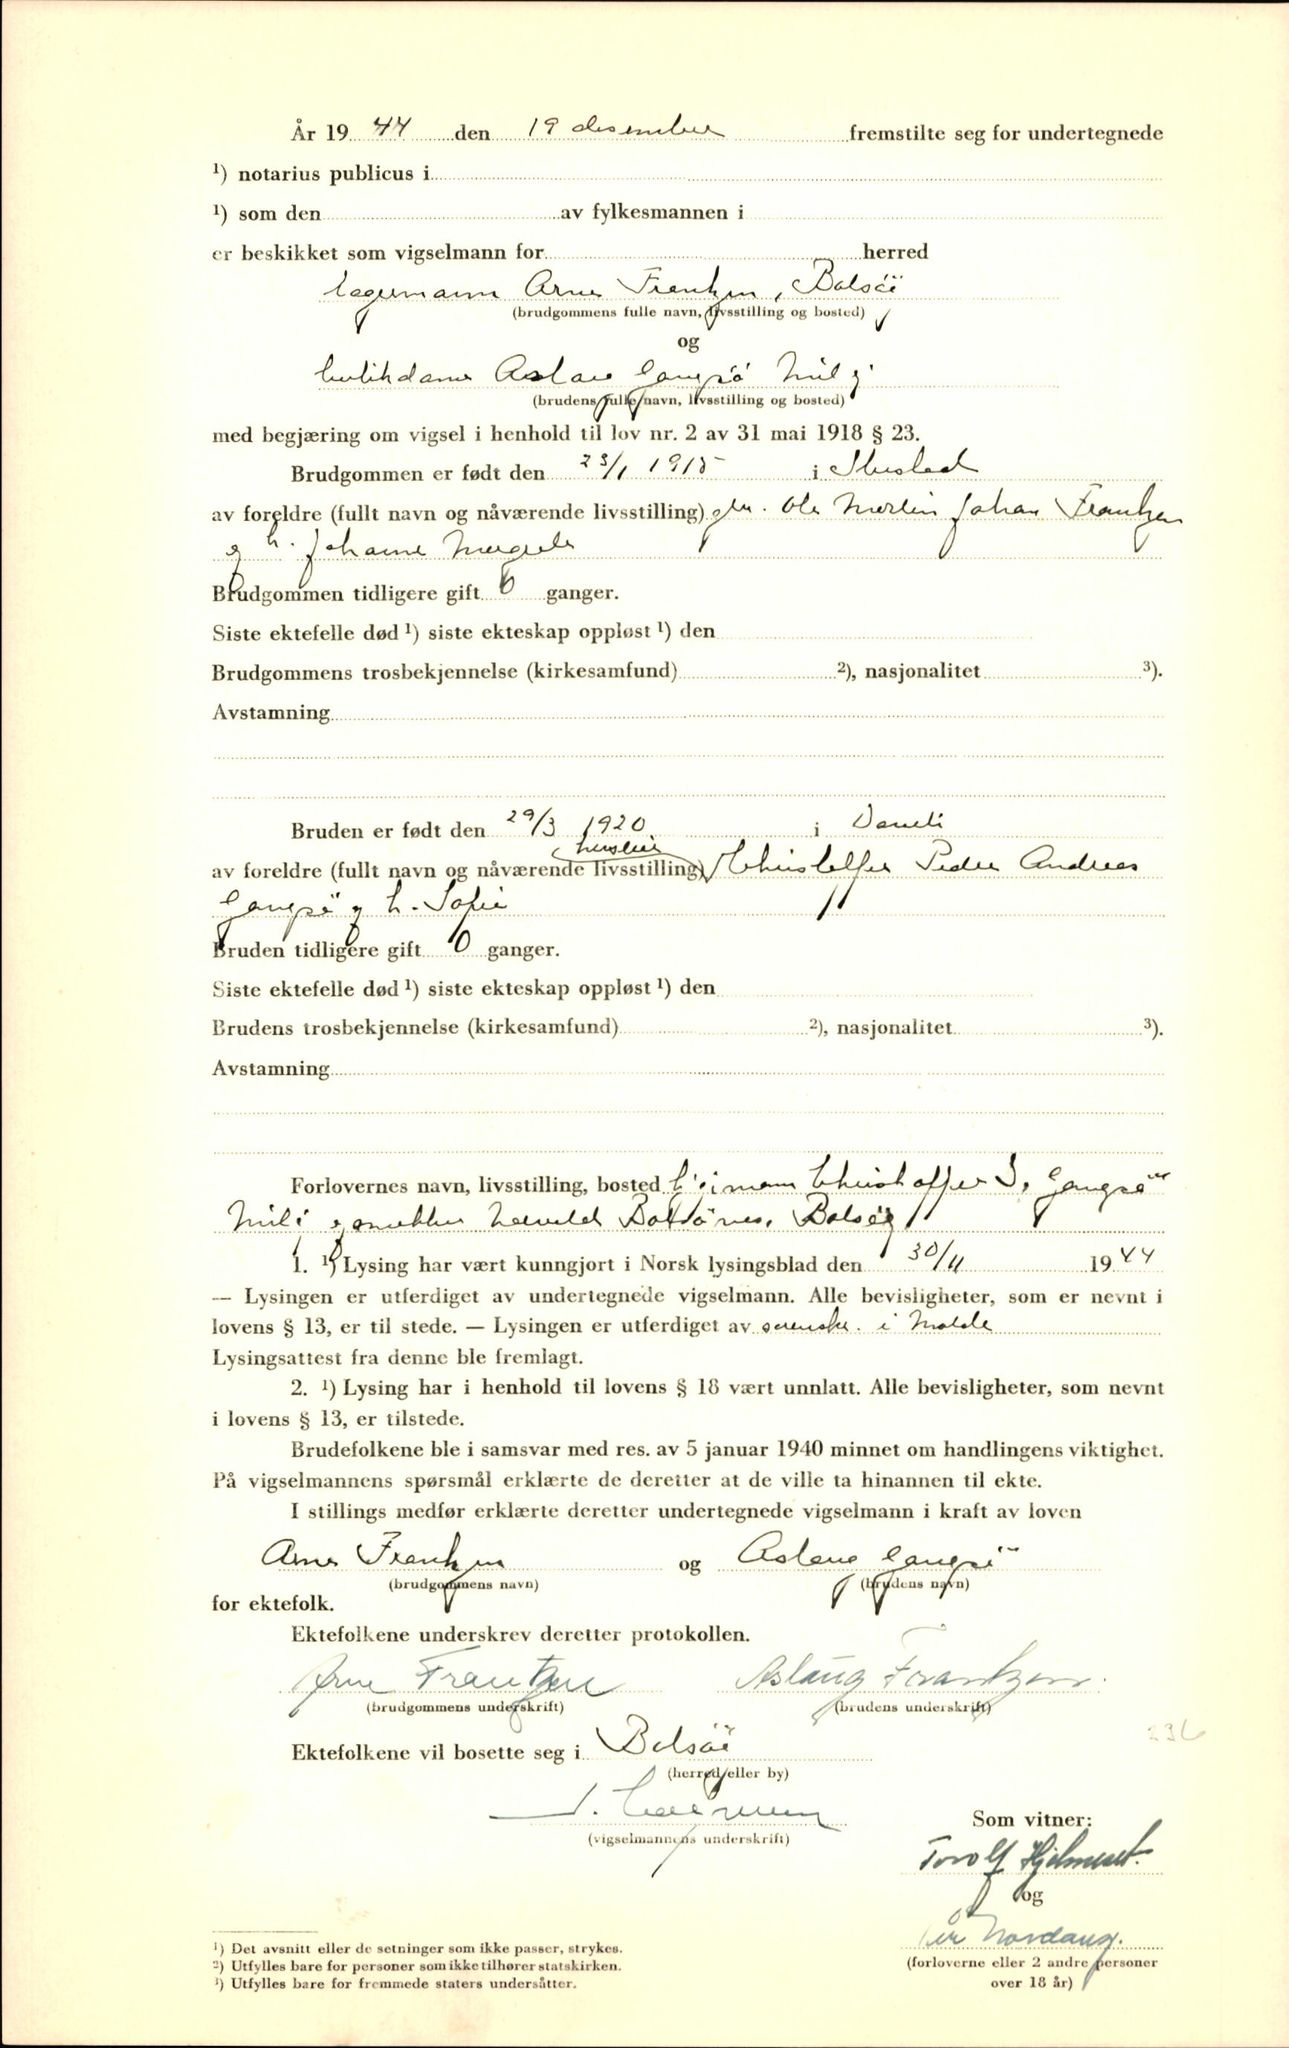 År 19 44 den 19 desember fremstilte seg for undertegnede
¹) notarius publicus i
¹) som den av fylkesmannen i
er beskikket som vigselmann for herred
lagermann Arne Frantzen, Bolsöi
(brudgommens fulle navn, livsstilling og bosted)
og
butikdame Aslaug Gangsö
(brudens fulle navn, livsstilling og bosted)
med begjæring om vigsel i henhold til lov nr. 2 av 31 mai 1918 § 23.
Brudgommen er født den 23/1 1915 i Hustad
av foreldre (fullt navn og nåværende livsstilling) Ole Martin Johan Frantzen
og h. Johanne
Brudgommen tidligere gift 0 ganger.
Siste ektefelle død ¹) siste ekteskap oppløst ¹) den
Brudgommens trosbekjennelse (kirkesamfund) ²), nasjonalitet ³).
Avstamning
Bruden er født den 29/3 1920 i
av foreldre (fullt navn og nåværende livsstilling) Christoffer Peder Andreas
Gangsö og h. Sofie
Bruden tidligere gift 0 ganger.
Siste ektefelle død ¹) siste ekteskap oppløst ¹) den
Brudens trosbekjennelse (kirkesamfund) ²), nasjonalitet ³).
Avstamning
Forlovernes navn, livsstilling, bosted Christoffer Gangsö
og snekker Bolsöi
1. ¹) Lysing har vært kunngjort i Norsk lysingsblad den 30/11 19 44
— Lysingen er utferdiget av undertegnede vigselmann. Alle bevisligheter, som er nevnt i
lovens § 13, er til stede. — Lysingen er utferdiget av sorenskr. i Molde
Lysingsattest fra denne ble fremlagt.
2. ¹) Lysing har i henhold til lovens § 18 vært unnlatt. Alle bevisligheter, som nevnt
i lovens § 13, er tilstede.
Brudefolkene ble i samsvar med res. av 5 januar 1940 minnet om handlingens viktighet.
På vigselmannens spørsmål erklærte de deretter at de ville ta hinannen til ekte.
I stillings medfør erklærte deretter undertegnede vigselmann i kraft av loven
Arne Frantzen og Aslaug Gangsö
(brudgommens navn) (brudens navn)
for ektefolk.
Ektefolkene underskrev deretter protokollen.
Arne Frantzen Aslaug Frantzen.
(brudgommens underskrift) (brudens underskrift)
236
Ektefolkene vil bosette seg i Bolsöi
(herred eller by)
(vigselmannens underskrift)
Som vitner:
Torolf Hjelmeset.
og
Nordang.
(forloverne eller 2 andre personer
over 18 år)
¹) Det avsnitt eller de setninger som ikke passer, strykes.
²) Utfylles bare for personer som ikke tilhører statskirken.
³) Utfylles bare for fremmede staters undersåtter.